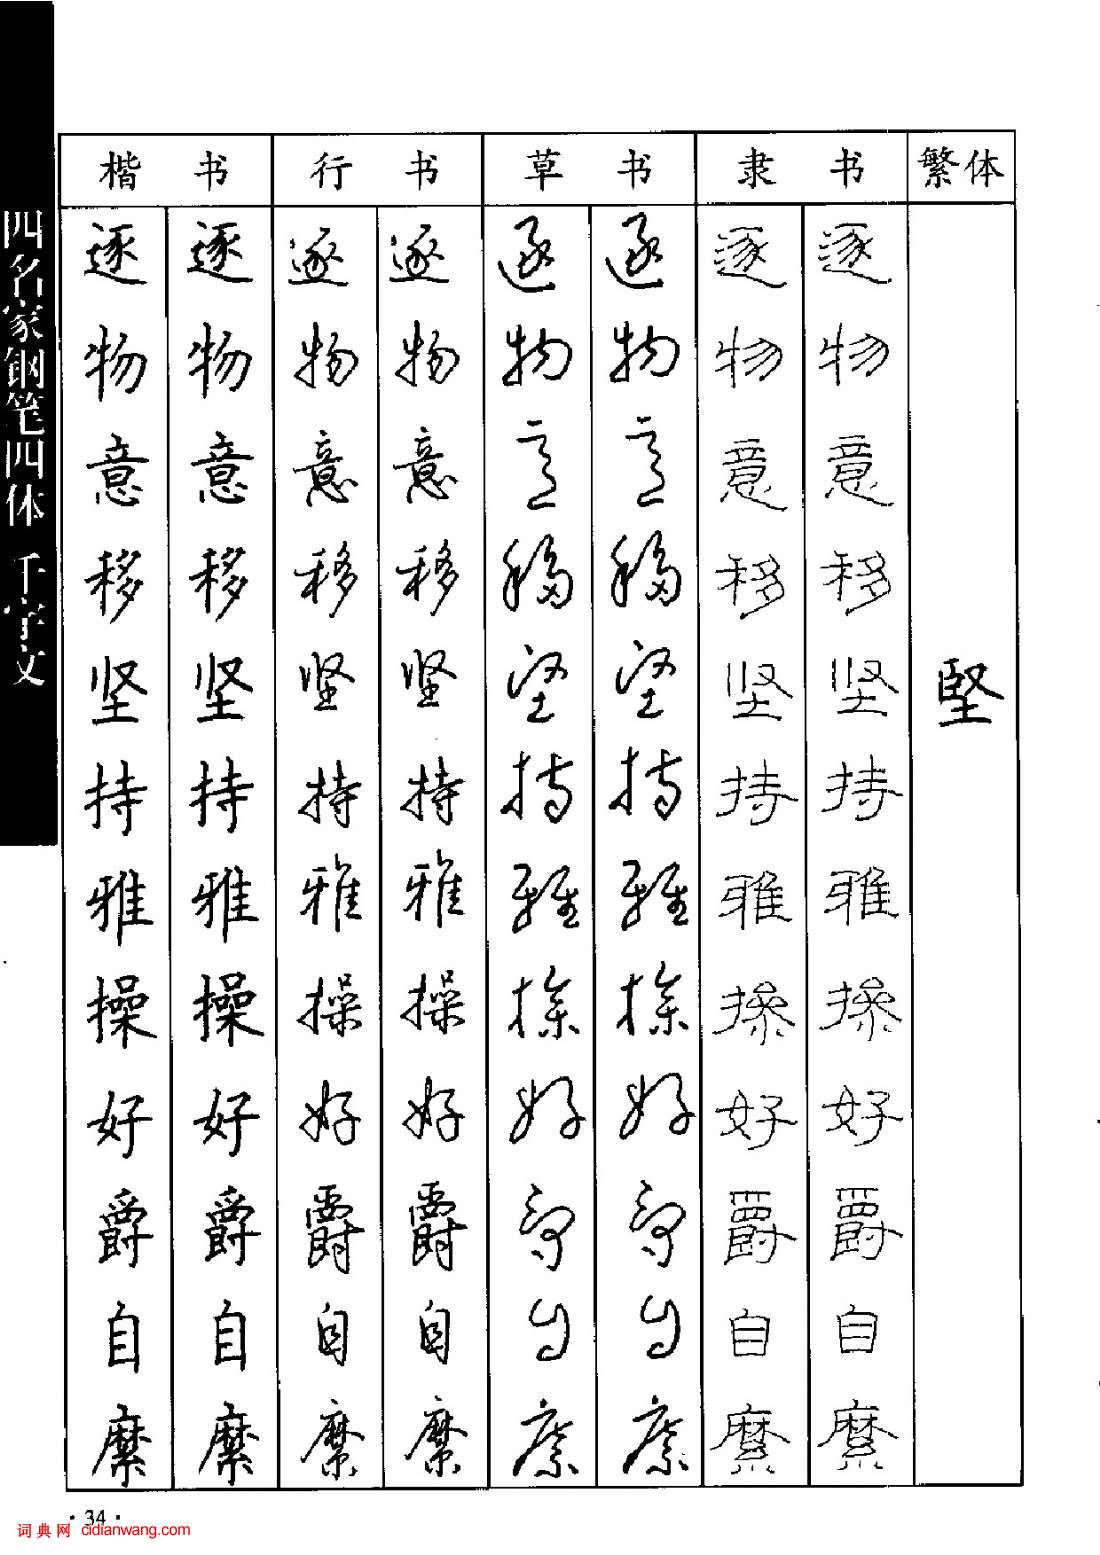 四名家钢笔四体 千字文
楷书 行书 草书 隶书 繁体
逐 逐 逐 逐 逐 逐 逐 逐
物 物 物 物 物 物 物 物
意 意 意 意 意 意 意 意
移 移 移 移 移 移 移 移
坚 坚 坚 坚 坚 坚 坚 坚 堅
持 持 持 持 持 持 持 持
雅 雅 雅 雅 雅 雅 雅 雅
操 操 操 操 操 操 操 操
好 好 好 好 好 好 好 好
爵 爵 爵 爵 爵 爵 爵 爵
自 自 自 自 自 自 自 自
縻 縻 縻 縻 縻 縻 縻 縻
·34·
词典网 cidianwang.com